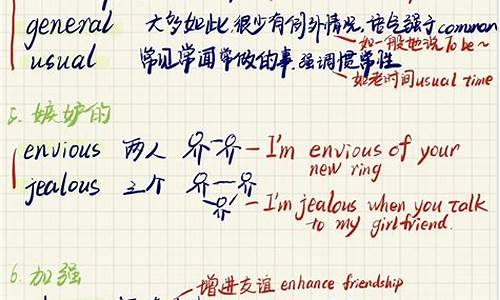 general 大多如此,很少有例外情况,语气强于common
如一般地说 to be~
usual 常见常闻常做的事,强调惯常性
如老时间 usual time
5. 嫉妒的
envious 两人 I'm envious of your
new ring
jealous 三个
I'm jealous when you talk
to my girlfriend.
6. 加强
增进友谊 enhance friendship